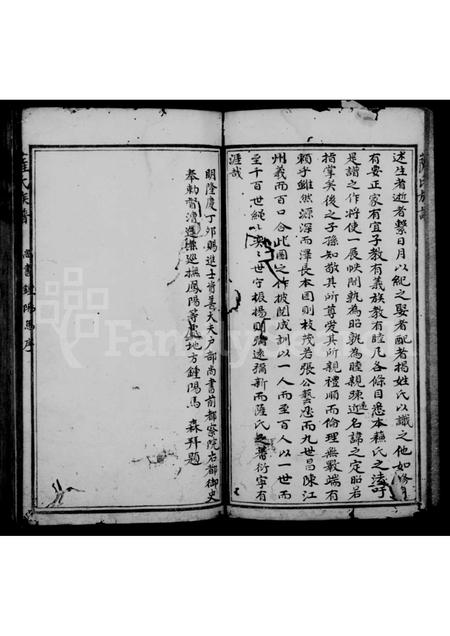 述生者逝者繫日月以紀之娶者配者揭姓氏以識之他如修身
有要正家有宜子教有義族教有睦凡各條目悉本蘇氏之法吁
是譜之作將使一展帙間孰為昭孰為睦親疎近名諱之定昭若
指掌矣後之子孫知敬其所尊愛其所親禮順而倫理無斁端有
賴乎雖然源深而澤長本固則枝茂若張公藝而九世昌陳江
州義而百口合此圖之作披閱成訓以一人而至百人以一世而
至千百世繩世守振揚明德遠彌新而薩氏之蕃衍寧有
涯哉
明隆慶丁卯賜進士資善大夫戶部尚書前都察院右都御史
奉勅督漕運兼巡撫鳳陽等處地方鍾陽馬森拜題
薩氏族譜
尚書鍾陽馬序
FamilySearch